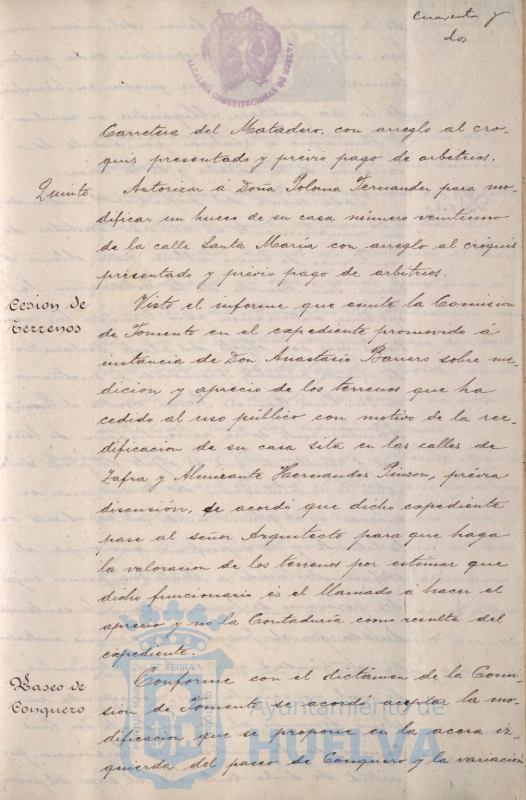 Cuarenta y
dos
ALCALDIA CONSTITUCIONAL DE HUELVA
Carretera del Matadero, con arreglo al cro-
quis presentado y prévio pago de arbitrios.
Quinto. Autorizar á Doña Polonia Fernandez para mo-
dificar un hueco de su casa número veintiuno
de la calle Santa María con arreglo al cróquis
presentado y prévio pago de arbitrios.
Cesion de
Terrenos
Visto el informe que emite la Comision
de Fomento en el expediente promovido á
instancia de Don Anastasio Barrero sobre me-
dicion y aprecio de los terrenos que ha
cedido al uso público con motivo de la ree-
dificacion de su casa sita en las calles de
Zafra y Almirante Hernandez Pinzon, prévia
discusión, se acordó que dicho expediente
pase al señor Arquitecto para que haga
la valoracion de los terrenos por estimar que
dicho funcionario es el llamado á hacer el
aprecio y no la Contaduría como resulta del
expediente.
Paseo de
Conquero
Conforme con el dictámen de la Comi-
sion de Fomento se acordó aceptar la mo-
dificacion que se propone en la acera iz-
quierda del paseo de Conquero y la variacion
Ayuntamiento de
HUELVA